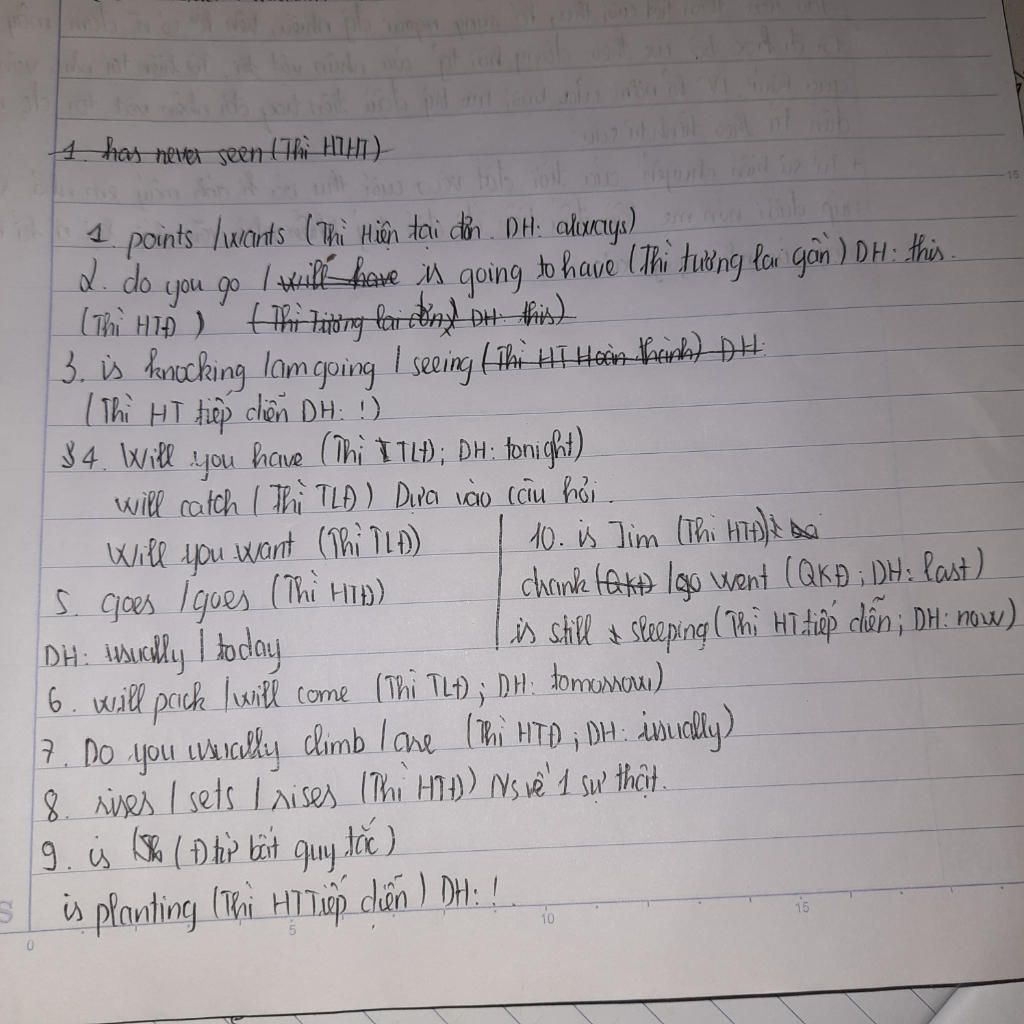 1. has never seen (Thì HTHT)
1. points / wants (Thì Hiện tại đơn. DH: always)
2. do you go / will have is going to have (Thì tương lai gần) DH: this.
(Thì HTĐ) (Thì Tương lai đơn) DH: this)
3. is knocking / am going / seeing (Thì HT Hoàn thành) DH:
(Thì HT tiếp diễn DH: !)
4. Will you have (Thì TLĐ; DH: tonight)
will catch (Thì TLĐ) Dựa vào câu hỏi.
Will you want (Thì TLĐ)
5. goes / goes (Thì HTĐ)
DH: usually / today
10. is Jim (Thì HTĐ)
drank (QKĐ) / go went (QKĐ; DH: last)
is still sleeping (Thì HT tiếp diễn; DH: now)
6. will pack / will come (Thì TLĐ; DH: tomorrow)
7. Do you usually climb / are (Thì HTĐ; DH: usually)
8. rises / sets / rises (Thì HTĐ) Ns về 1 sự thật.
9. is (Đ từ bất quy tắc)
is planting (Thì HT Tiếp diễn) DH: !
0 5 10 15
15